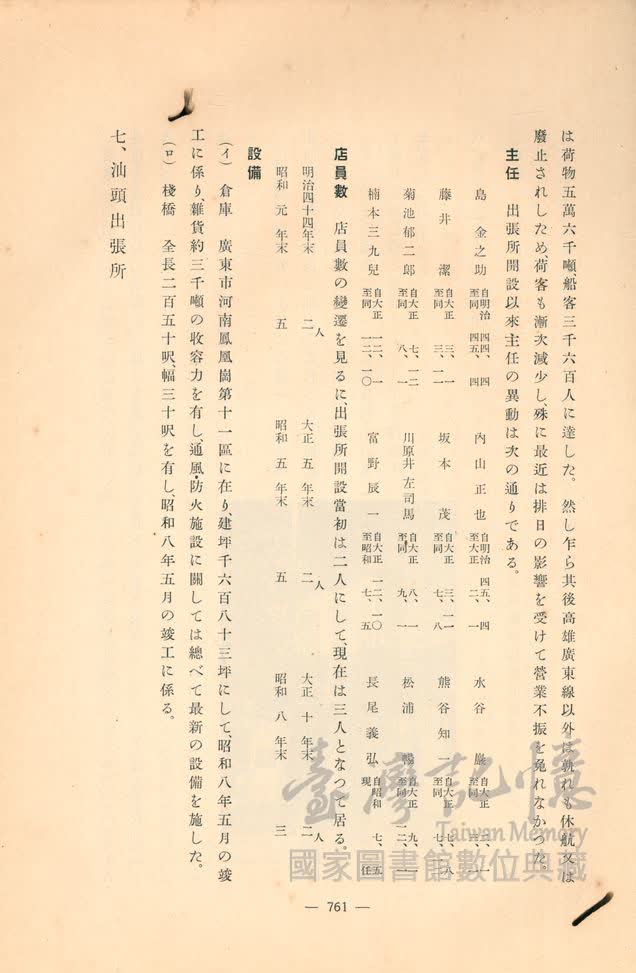 は荷物五萬六千噸、船客三千六百人に達した。然し乍ら其後高雄廣東線以外は孰れも休航又は
廢止されしため、荷客も漸次減少し、殊に最近は排日の影響を受けて營業不振を免れなかつた。
主任　出張所開設以來主任の異動は次の通りである。
島金之助　自明治四四、四　至同四五、四　內山正也　自明治四五、四　至大正二、一　水谷巖　自大正二、一　至同三、一
藤井潔　自大正三、一　至同三、一一　坂本茂　自大正三、一一　至同七、八　熊谷知一　自大正七、八　至同七、一一
菊池郁二郎　自大正七、一二　至同八、一　川原井左司馬　自大正八、一　至同九、一　松浦暢　自大正九、一　至同一二、一
楠本三九兒　自大正一二、一　至同一二、一〇　富野辰一　自大正一二、一〇　至昭和七、五　長尾義弘　自昭和七、五　現任
店員數　店員數の變遷を見るに、出張所開設當初は二人にして、現在は三人となつて居る。
明治四十四年末　二人　大正五年末　二人　大正十年末　二人
昭和元年末　五　昭和五年末　五　昭和八年末　三
設備
（イ）倉庫　廣東市河南鳳凰崗第十一區に在り、建坪千六百八十三坪にして、昭和八年五月の竣
工に係り、雜貨約三千噸の收容力を有し、通風・防火施設に關しては總べて最新の設備を施した。
（ロ）棧橋　全長二百五十呎、幅三十呎を有し、昭和八年五月の竣工に係る。
七、汕頭出張所
— 761 —
臺灣記憶
Taiwan Memory
國家圖書館數位典藏